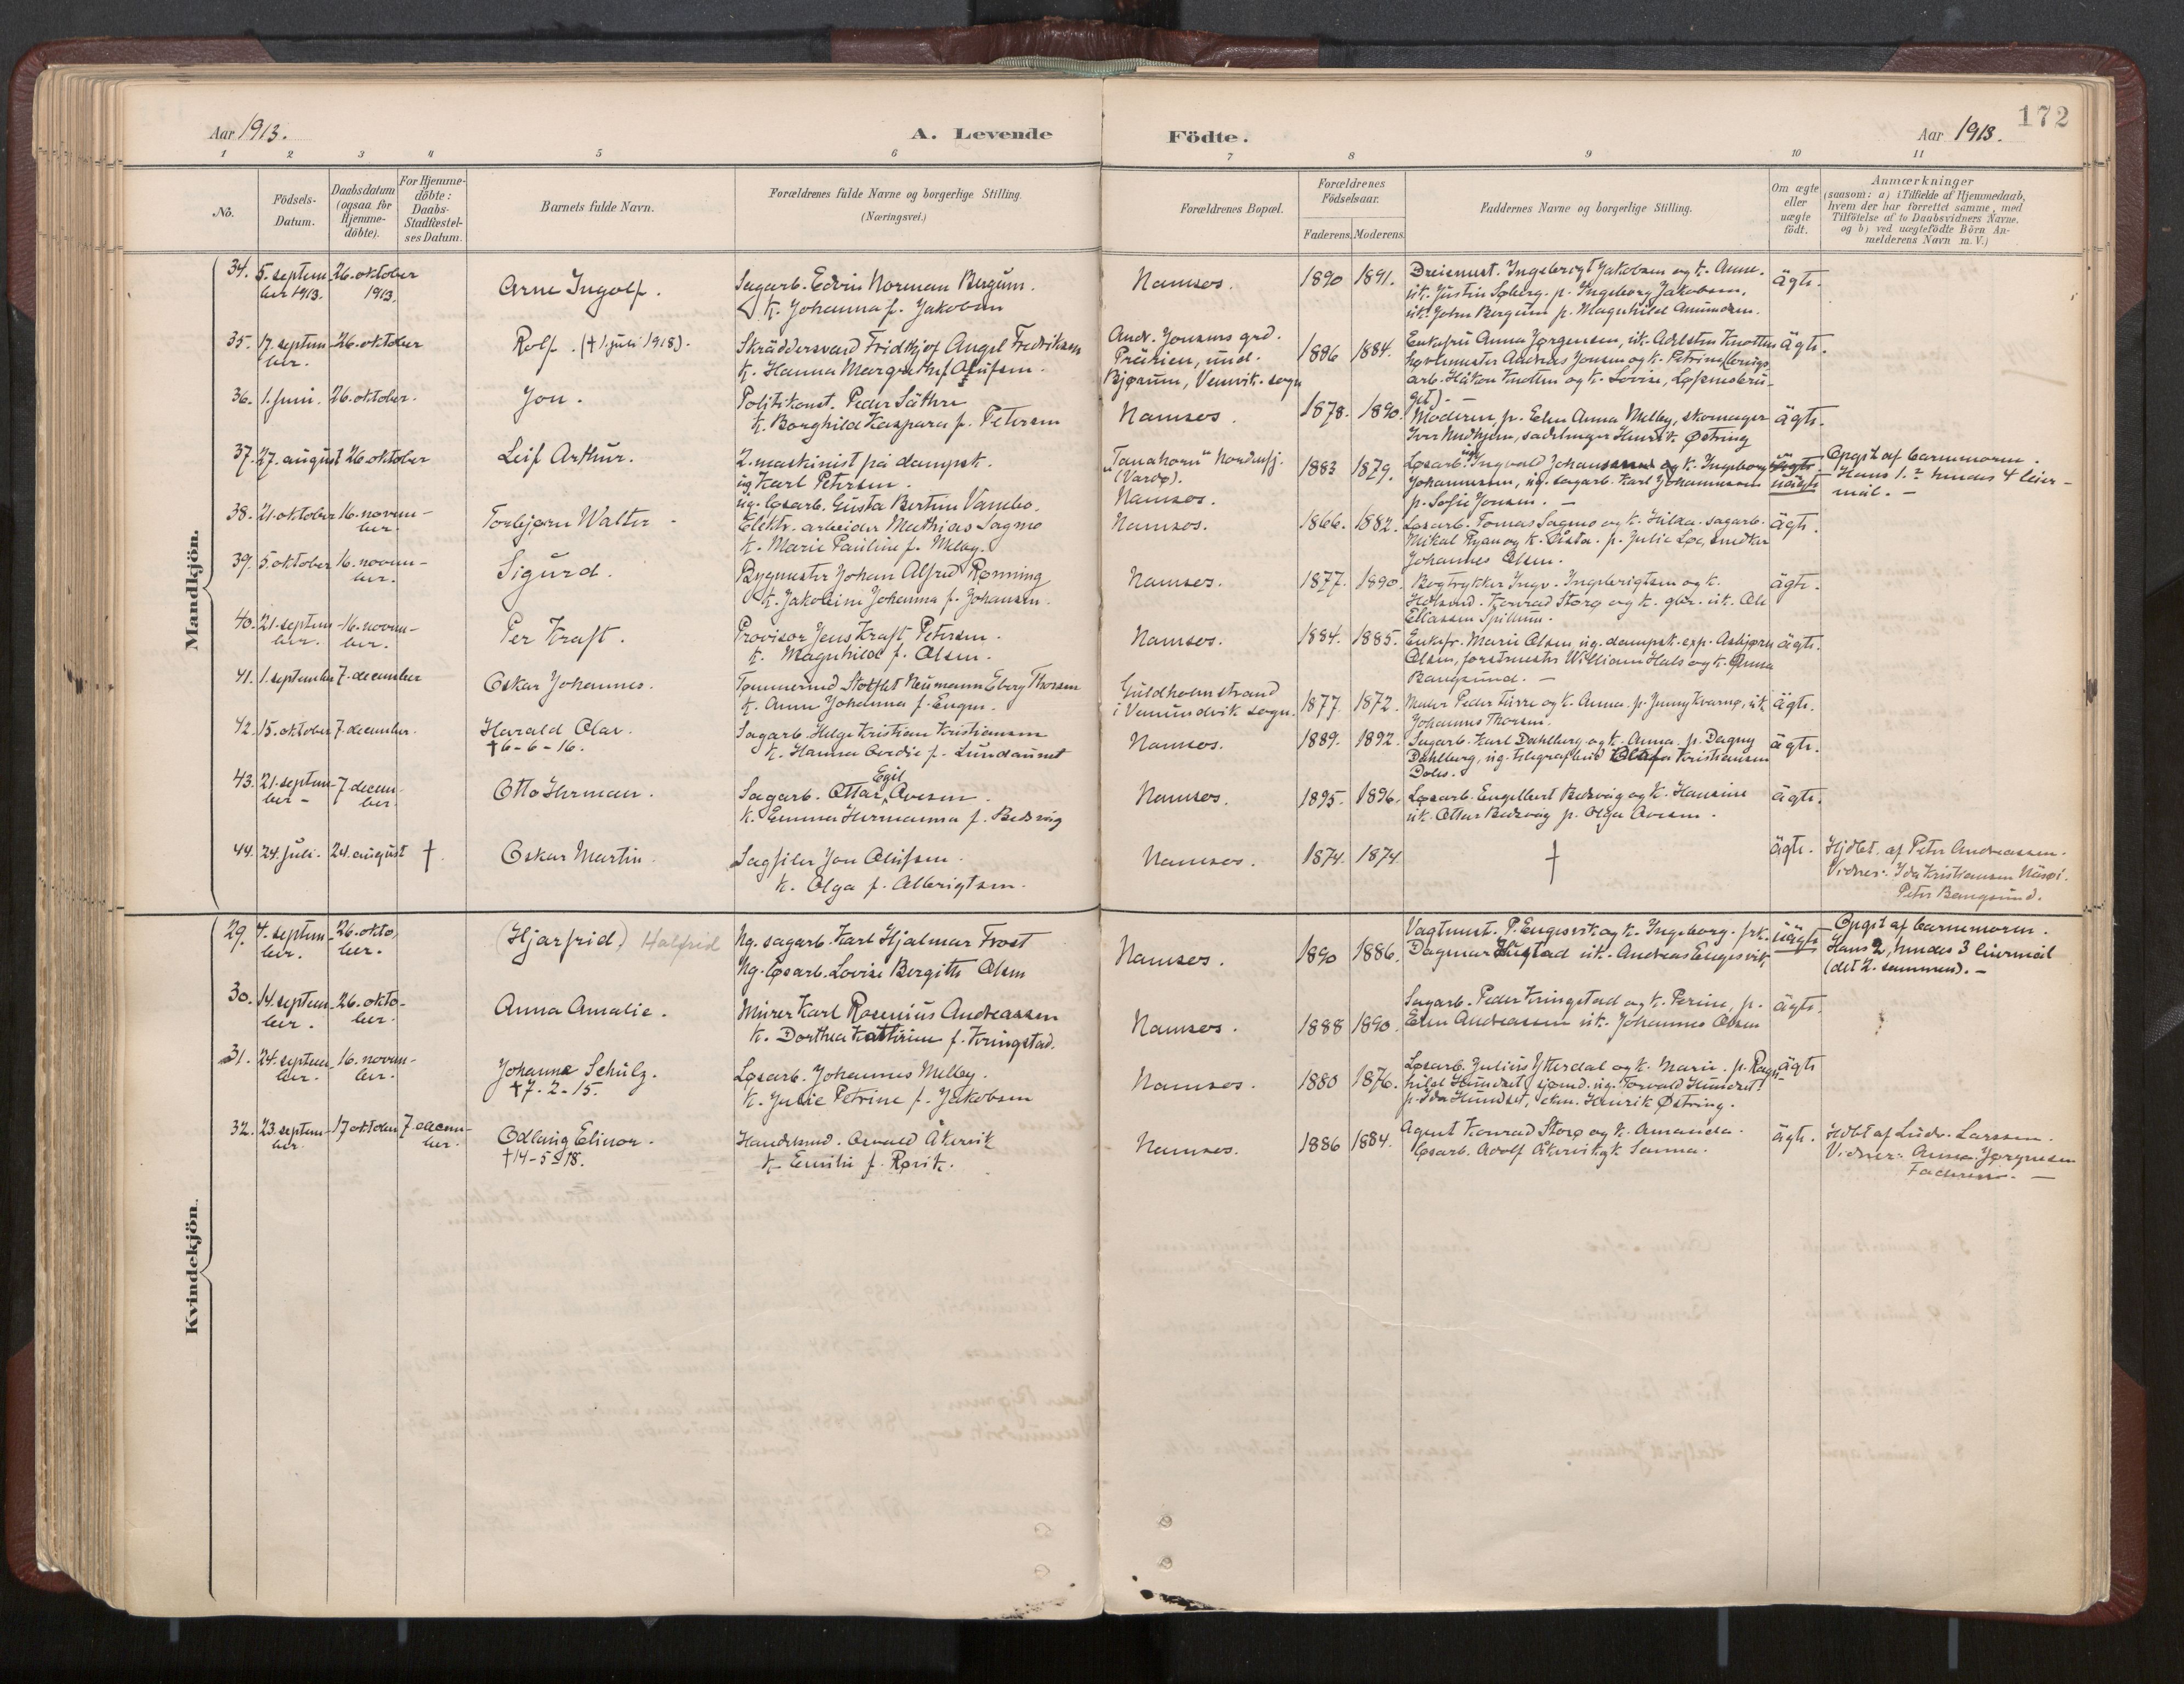 172
Aar 1913.
A. Levende
Födte.
Aar 1913.
1 2 3 4 5 6 7 8 9 10 11
No.
Födsels-
Datum.
Daabsdatum
(ogsaa for
Hjemme-
döbte).
For Hjemme-
döbte:
Daabs-
Stadfæstel-
ses Datum.
Barnets fulde Navn.
Forældrenes fulde Navne og borgerlige Stilling.
(Næringsvei.)
Forældrenes Bopæl.
Forældrenes
Födselsaar.
Faderens. Moderens.
Faddernes Navne og borgerlige Stilling.
Om ægte
eller
uægte
födt.
Anmærkninger
(saasom: a) i Tilfælde af Hjemmedaab,
hvem der har forrettet samme, med
Tilföielse af to Daabsvidners Navne,
og b) ved uægtefödte Börn An-
melderens Navn m. V.)
Mandkjön.
34. 5. septem- 26. oktober
ber 1913. 1913.
Arne Ingolf.
Sagarb. Edvin Norman Bergum.
k. Johanna f. Jakobsen
Namsos. 1890 1891.
Dreiermest. Ingebrigt Jakobsen og k. Anne.
uk. Justin Soberg. p. Ingeborg Jakobsen,
uk. John Bergum p. Magnhild Amundsen.
ägte.
35. 17. septem- 26. oktober
ber.
Rolf. († 1 juli 1918).
Skräddersvend Fridthjof Angel Fredriksen
k. Hanna Margrethe f. Olufsen.
Andr. Jonsens grd.
Prärien, und.
Bjørum, Vemvik. sogn
1886 1884.
Enkefru Anna Jørgensen, uk. Adelsten Knotten
Andreas Jonsen og k. Petrine
arb. Håkon Knotten og k. Lovise,
ägte.
36. 1. juni. 26. oktober.
Jon.
Politikonst. Peder Säther
k. Borghild Kaspara f. Petersen
Namsos. 1878. 1890.
Moderen, p. Elen Anna Melby, skomager
Iver Nedkjeln, sadelmager Henrik Østring
ägte.
37. 27. august 26 oktober
Leif Arthur.
2. maskinist på dampsk.
ug Karl Petersen.
ug. løsarb. Gusta Bertine Vannebo.
"Tanahorn" Nordenfj.
(Vardø).
Namsos.
1883 1879.
Løsarb. Ingvald Johansen og k. Ingeborg
Johannesen, ug. sagarb. Karl Johannesen
p. Sofie Jonsen. -
uägte
Opgit af barnemoren.
Hans 1. hendes 4 leier-
mål. -
38. 21. oktober 16. novem-
ber.
Torbjørn Walter.
Elektr. arbeider Mathias Sagmo
k. Marie Pauline f. Melby.
Namsos. 1866. 1882.
Løsarb. Tomas Sagmo og k. Hilda. sagarb.
Mikal Ryan og k. Østa. p. Julie Løe, snedker
Johannes Olsen.
ägte.
39. 5. oktober 16. novem-
ber.
Sigurd.
Bygmester Johan Alfred Rønning
k. Jakobine Johanna f. Johansen.
Namsos. 1877. 1890.
Bogtrykker Ingv. Ingebrigtsen og k.
Hdlsmd. Konrad Storø og k. gbr. uk. Ole
Eliassen Spillum.
ägte.
40. 21. septem- 16. novem-
ber. ber.
Per Kraft.
Provisor Jens Kraft Petersen.
k. Magnhild f. Olsen.
Namsos. 1884. 1885.
Enkefr. Marie Olsen, ug. dampsk. exp. Asbjørn
Olsen, forstmester William Hals og k. Anna
Bangsund. -
ägte.
41. 1. september 7. december
Oskar Johannes.
Tømmermd Neumann Eberg Thorsen
k. Anne Johanna f. Engen.
Guldholmstrand
i Vemundvik sogn.
1877. 1872.
Maler Peder Lirre og k. Anna. p. Jenny Kvarnø, uk.
Johannes Thorsen.
ägte.
42. 15. oktober 7. december.
Harald Olav.
† 6-6-16.
Sagarb. Helge Kristian Kristiansen
k. Hanna Ovedie f. Lundaunet
Namsos. 1889. 1892.
Sagarb. Karl Dahlberg og k. Anna. p. Dagny
Dahlberg, ug. telegrafbud Olaf Kristiansen
ägte.
43. 21. septem- 7 decem-
ber - ber.
Otto Herman.
Egil
Sagarb. Ottar Ovesen.
k. Emma Hermanna f. Bedsvåg
Namsos. 1895. 1896.
Løsarb. Engelbert Bedsvåg og k. Hansine
uk. Ottar Bedsvåg p. Olga Ovesen.
ägte.
44. 24. juli. 24. august †.
Oskar Martin.
Sagfiler Jon Olufsen.
k. Olga f. Albrigtsen.
Namsos. 1874. 1874 † ägte.
Hjdbt. af Peter Andreassen.
Vidner: Ida Kristiansen
Peter Bangsund.
Kvindekjön.
29. 4. septem- 26. okto-
ber. ber.
(Hjarfrid) Halfrid
Ug. sagarb. Karl Hjalmar Frost
Ug. løsarb. Lovise Bergitte Olsen
Namsos. 1890 1886.
Vagtmest. P. Engesvik og k. Ingeborg. frk.
Dagmar Hustad uk. Andreas Engesvik
uägte
Opgit af barnemoren.
Hans 2, hendes 3 leiermål
(det 2. sammen). -
30. 14. septem- 26. okto-
ber. ber.
Anna Amalie.
Murer Karl Rosenius Andreassen
k. Dorthea Kathrine f. Kringstad.
Namsos. 1888 1890.
Sagarb. Peder Kringstad og k. Perine, p.
Elen Andreassen uk. Johannes Olsen
ägte.
31. 24. septem- 16. novem-
ber. ber.
Johanne Schulz.
† 7-2-15.
Løsarb. Johannes Melby.
k. Julie Petrine f. Jakobsen
Namsos. 1880 1876.
Løsarb. Julius Ytterdal og k. Marie. p. Ragn-
hild Hundset, sjømd. ug. Torvald Hundset,
p. Ida Hundset, ekm. Henrik Østring.
ägte
32. 23. septem- 17 oktober 7. decem-
ber. ber.
Odlaug Elinor.
† 14-5-18.
Handelsmd. Osvald Åkervik
k. Emilie f. Rørvik.
Namsos. 1886 1884.
Agent Konrad Storø og k. Amanda.
Løsarb. Adolf Åkervik og k Sanna.
ägte.
Hdbt af Ludv. Larssen.
Vidner: Anna Jørgensen
Faderen. -